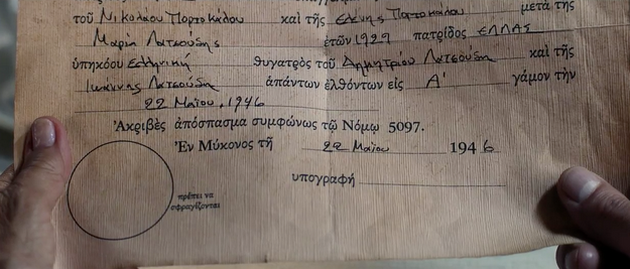 τοῦ Νικολάου Πορτοκάλου καὶ τῆς Ελένης Πορτοκάλου μετά τῆς
Μαρία Λατσούδης ἐτῶν 1929 πατρίδος ΕΛΛΑΣ
ὑπηκόου Ελληνική θυγατρὸς τοῦ Δημητρίου Λατσούδη καὶ τῆς
Ιωάννης Λατσούδη ἁπάντων ἐλθόντων εἰς Α' γάμον τὴν
22 Μαΐου, 1946
Ἀκριβὲς ἀπόσπασμα συμφώνως τῷ Νόμῳ 5097.
Ἐν Μύκονος τῇ 22 Μαΐου 1946
ὑπογραφή
πρέπει να
σφραγίζονται